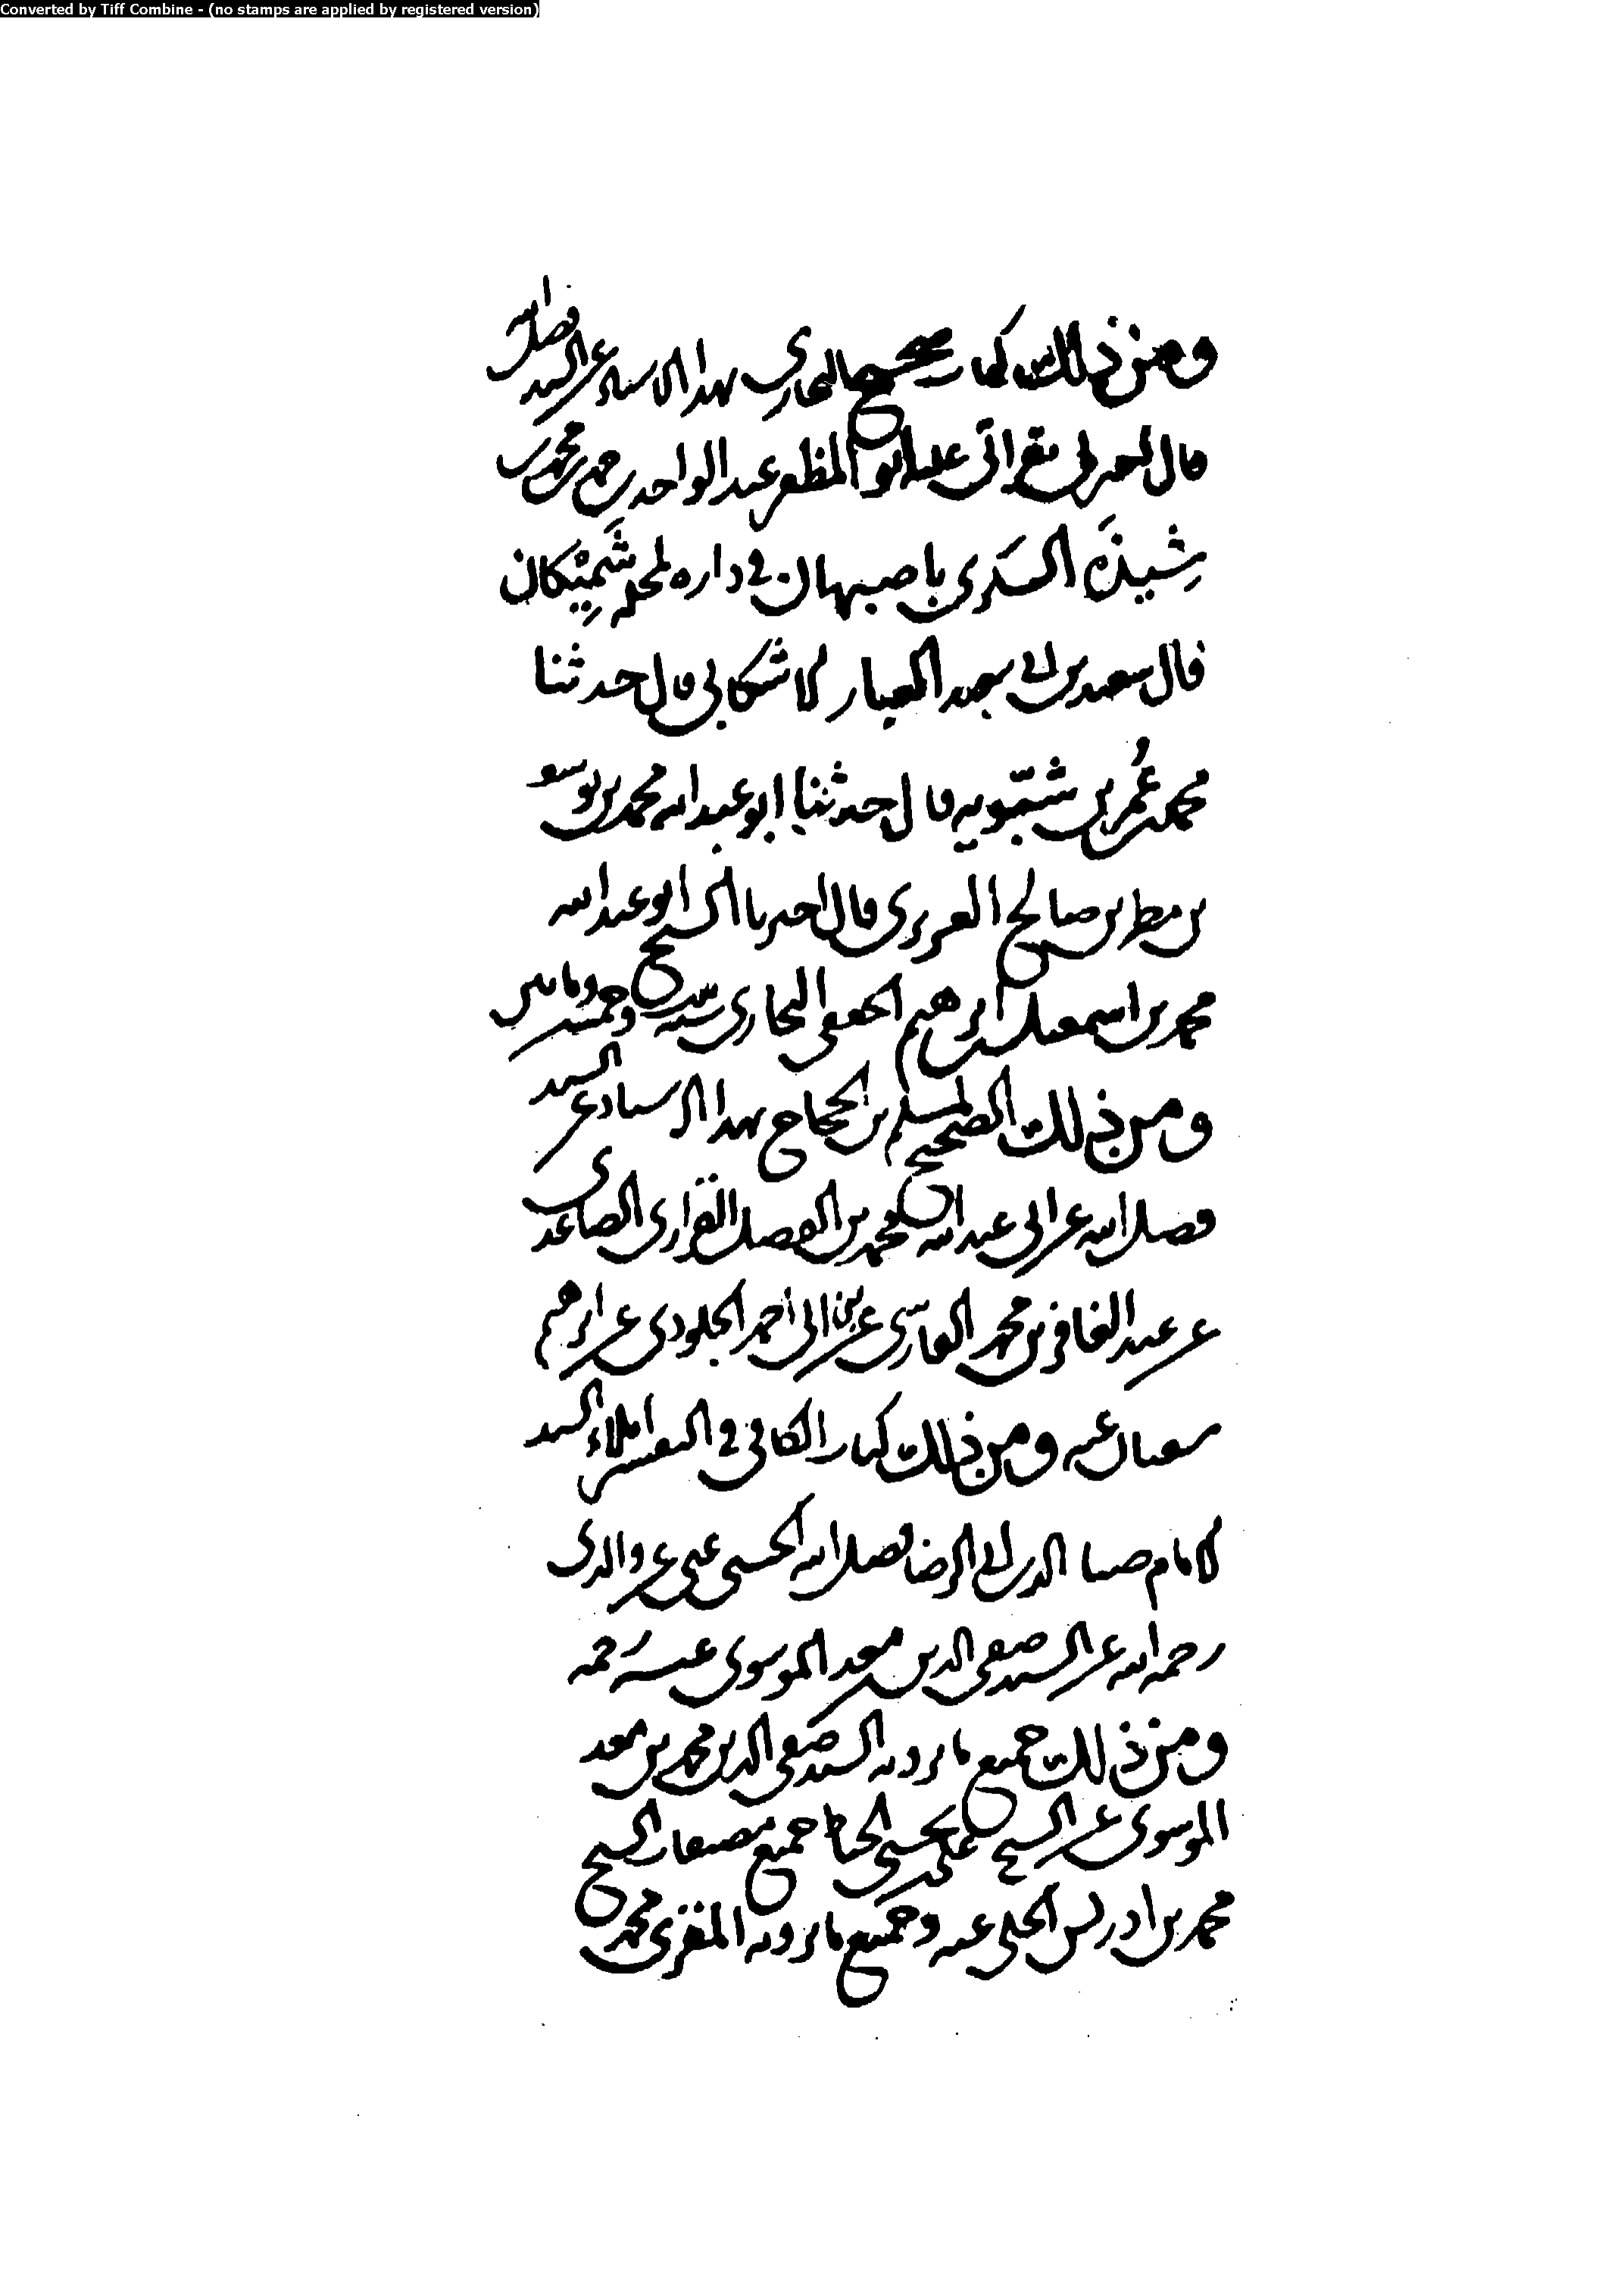 Converted by Tiff Combine - (no stamps are applied by registered version)
ومن ذلك كتاب صحيح البخاري بهذا الاسناد عن السيد فضل الله
قال اخبرني بقراتي عليه ابو المظفر عبد الواحد بن حمد بن محمد بن
شِيذَه السكري باصبهان في داره بمحله شَمِيْكان
قال سعيد بن ابي سعيد العيار الاشكابي قال حدثنا
محمد بن عُمر بن شبّويه قال حدثنا ابو عبد الله محمد بن يوسف
بن مطر بن صالح الفربري قال اخبرنا الشيخ ابو عبد الله
محمد بن اسمعيل بن ابرهيم الجعفي البخاري سنه وخمسين ومائتين
ومن ذلك الصحيح لمسلم بن الحجاج بهذا الاسناد عن السيد
فضل الله عن ابي عبد الله محمد بن الفضل الفراري الصاعدي
عن عبد الغافر بن محمد الفارسي عن ابي احمد الجلودي عن ابرهيم
سفيان عنه ومن ذلك كتاب الكافي في التفسير املاء السيد
الامام ضيا الدين ابي الرضا فضل الله الحسني عني عن والدي
رحمه الله عن السيد صفي الدين معد الموسوي عن رحمه
ومن ذلك جميع ما يرويه السيد صفي الدين محمد بن معد
الموسوي عن الشيخ علي بن يحيى الخياط جميع مصنفات الشيخ
محمد بن ادريس الحلي عنه وجميع ما يرويه المقري محمد